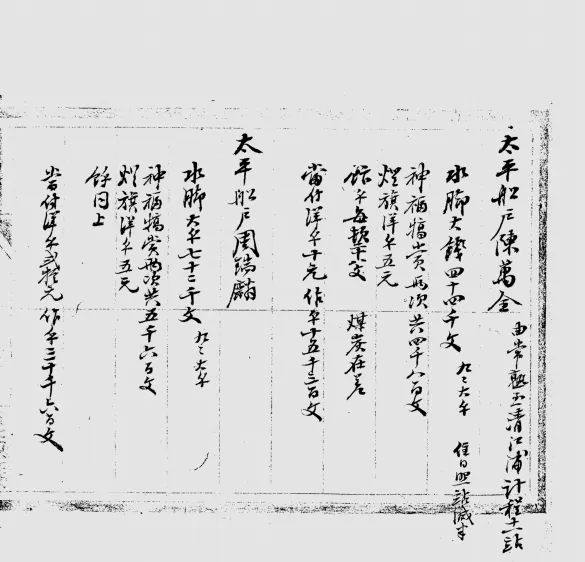 太平船户陳萬全 由常熟至清江浦計程十一站
水脚大錢四十四千文 九三大千 住日照站減半
神福犒賞兩次共四千八百文
燈旗洋五元
煤炭在差
當付洋十元 作十五千三百文
太平船户周瑞麟
水脚大七十二千文 九三大千
神福犒賞兩次共五千六百文
燈旗洋五元
餘同上
當付洋元 作三十千六百文